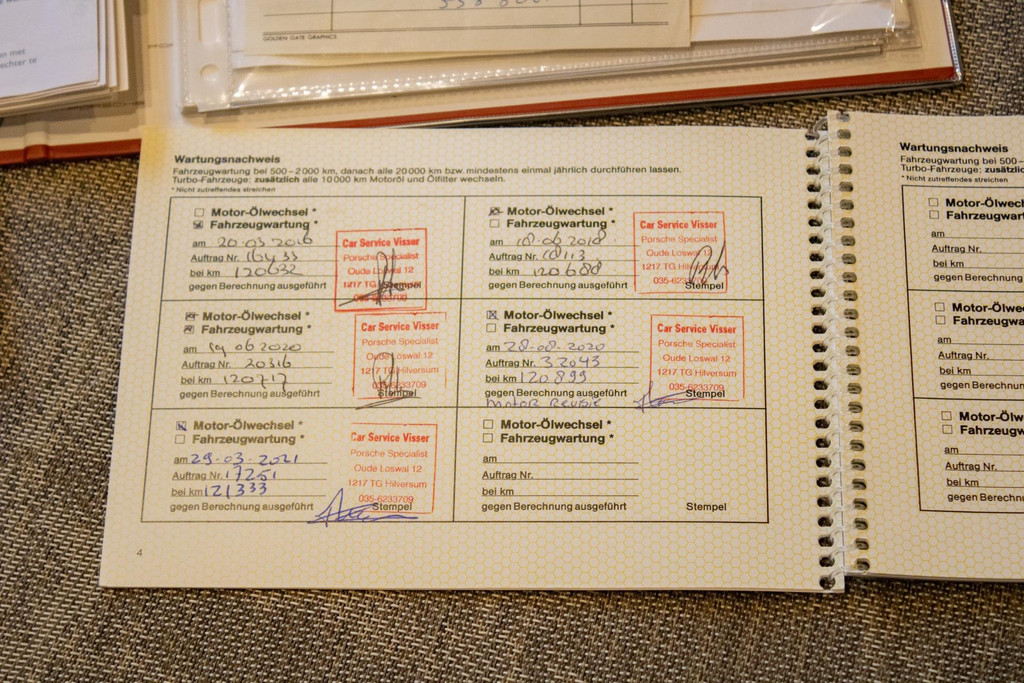 n met
echter te
GOLDEN GATE GRAPHICS
Wartungsnachweis
Fahrzeugwartung bei 500–2000 km, danach alle 20 000 km bzw. mindestens einmal jährlich durchführen lassen.
Turbo-Fahrzeuge: zusätzlich alle 10 000 km Motoröl und Ölfilter wechseln.
* Nicht zutreffendes streichen
Motor-Ölwechsel *
Fahrzeugwartung *
am 20-03-2016
Auftrag Nr. 16433
bei km 120632
gegen Berechnung ausgeführt
Car Service Visser
Porsche Specialist
Oude Loswal 12
1217 TG
Stempel
Motor-Ölwechsel *
Fahrzeugwartung *
am 18-06-2018
Auftrag Nr. 18113
bei km 120688
gegen Berechnung ausgeführt
Car Service Visser
Porsche Specialist
Oude Loswal 12
1217 TG Hilversum
Stempel
Motor-Ölwechsel *
Fahrzeugwartung *
am 19 06 2020
Auftrag Nr. 20316
bei km 120717
gegen Berechnung ausgeführt
Car Service Visser
Porsche Specialist
Oude Loswal 12
1217 TG Hilversum
035-6233709
Stempel
Motor-Ölwechsel *
Fahrzeugwartung *
am 28-08-2020
Auftrag Nr. 32043
bei km 120899
gegen Berechnung ausgeführt
MOTOR REVISIE
Car Service Visser
Porsche Specialist
Oude Loswal 12
1217 TG Hilversum
035-6233709
Stempel
Motor-Ölwechsel *
Fahrzeugwartung *
am 29-03-2021
Auftrag Nr. 17251
bei km 121333
gegen Berechnung ausgeführt
Car Service Visser
Porsche Specialist
Oude Loswal 12
1217 TG Hilversum
035-6233709
Stempel
Motor-Ölwechsel *
Fahrzeugwartung *
am
Auftrag Nr.
bei km
gegen Berechnung ausgeführt
Stempel
4
Wartungsnachweis
Fahrzeugwartung bei 500–
Turbo-Fahrzeuge: zusätzlic
* Nicht zutreffendes streichen
Motor-Ölwec
Fahrzeugwart
am
Auftrag Nr.
bei km
gegen Berechnung
Motor-Ölwe
Fahrzeugwar
am
Auftrag Nr.
bei km
gegen Berechnun
Motor-Ölw
Fahrzeugw
am
Auftrag Nr.
bei km
gegen Berechnun